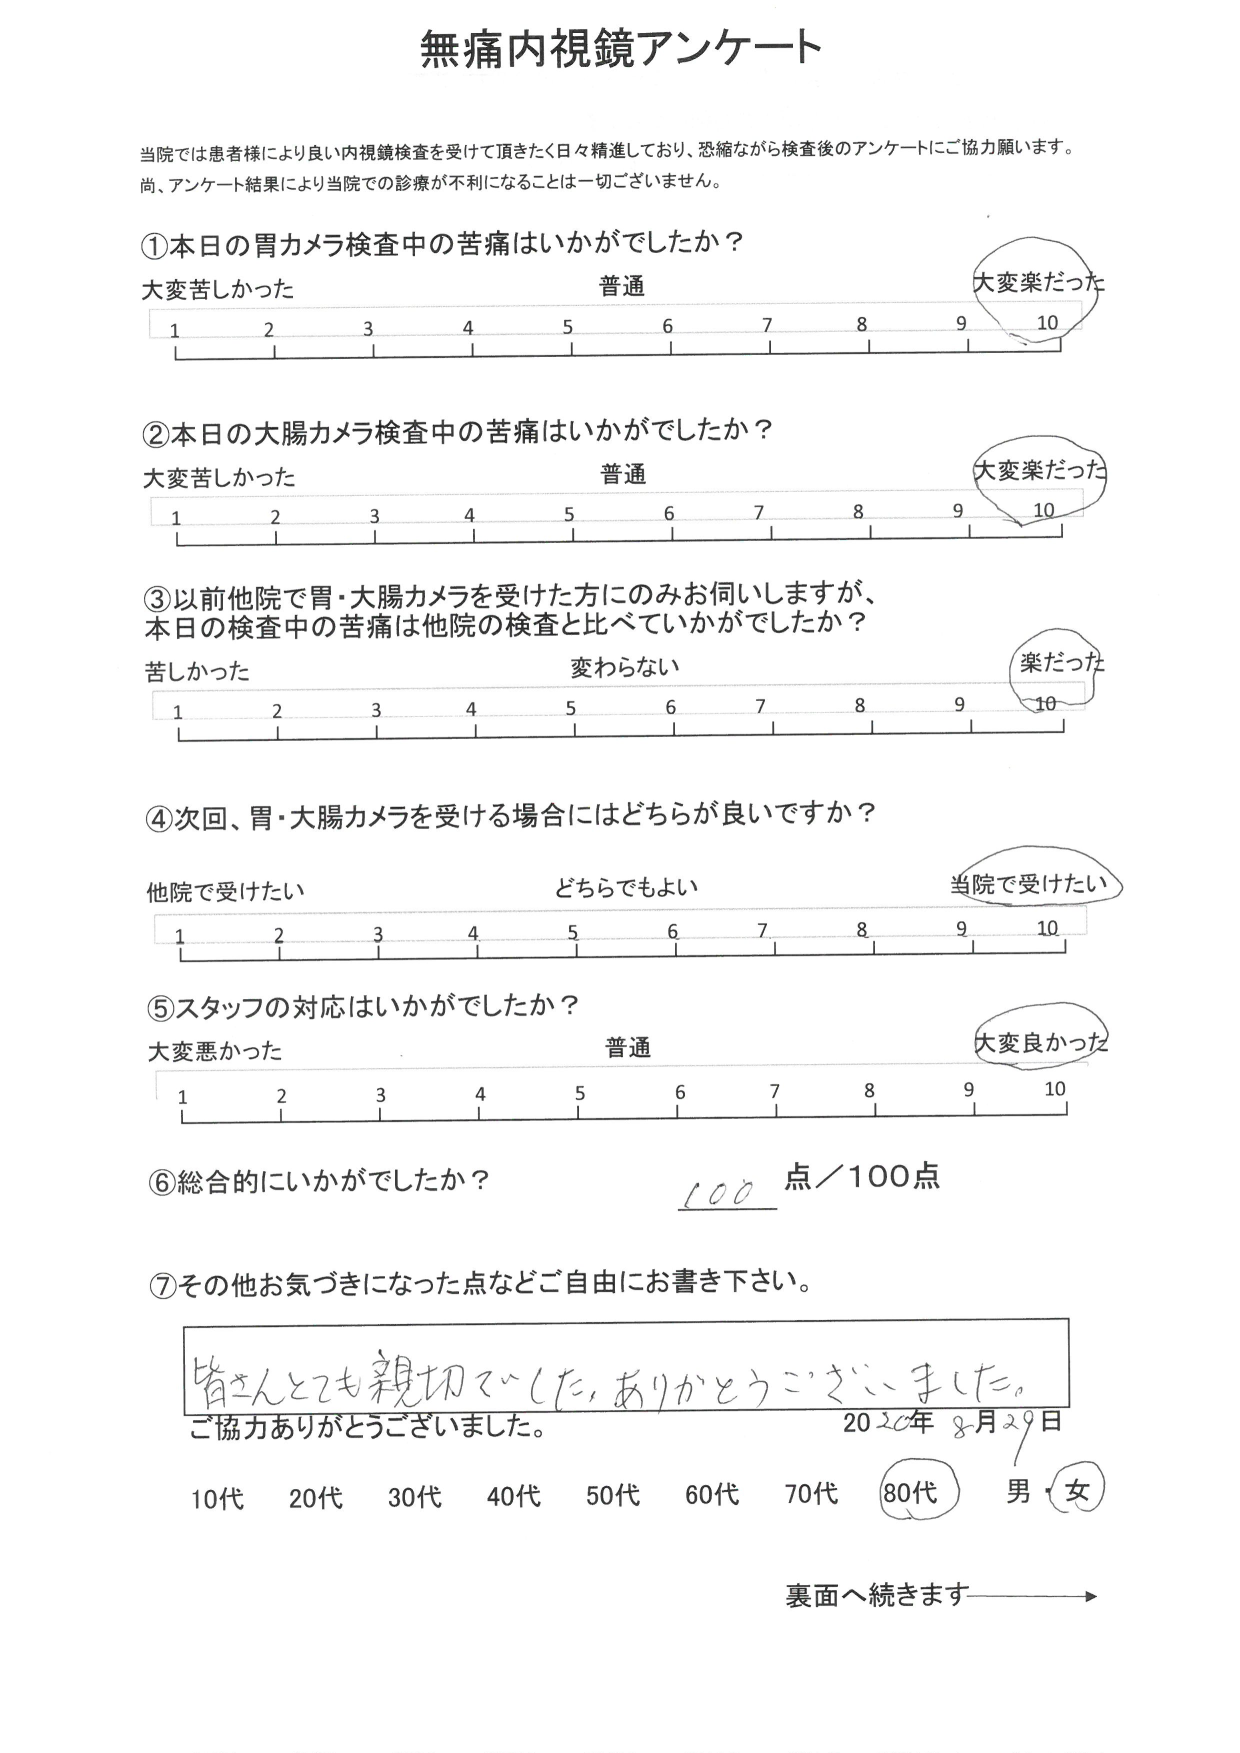 無痛内視鏡アンケート
当院では患者様により良い内視鏡検査を受けて頂きたく日々精進しており、恐縮ながら検査後のアンケートにご協力願います。
尚、アンケート結果により当院での診療が不利になることは一切ございません。
①本日の胃カメラ検査中の苦痛はいかがでしたか？
大変苦しかった 普通 大変楽だった
1 2 3 4 5 6 7 8 9 10
②本日の大腸カメラ検査中の苦痛はいかがでしたか？
大変苦しかった 普通 大変楽だった
1 2 3 4 5 6 7 8 9 10
③以前他院で胃・大腸カメラを受けた方にのみお伺いしますが、
本日の検査中の苦痛は他院の検査と比べていかがでしたか？
苦しかった 変わらない 楽だった
1 2 3 4 5 6 7 8 9 10
④次回、胃・大腸カメラを受ける場合にはどちらが良いですか？
他院で受けたい どちらでもよい 当院で受けたい
1 2 3 4 5 6 7 8 9 10
⑤スタッフの対応はいかがでしたか？
大変悪かった 普通 大変良かった
1 2 3 4 5 6 7 8 9 10
⑥総合的にいかがでしたか？ 100 点／100点
⑦その他お気づきになった点などご自由にお書き下さい。
皆さんとても親切でした,ありがとうございました。
ご協力ありがとうございました。 2020年 8月29日
10代 20代 30代 40代 50代 60代 70代 80代 男・女
裏面へ続きます